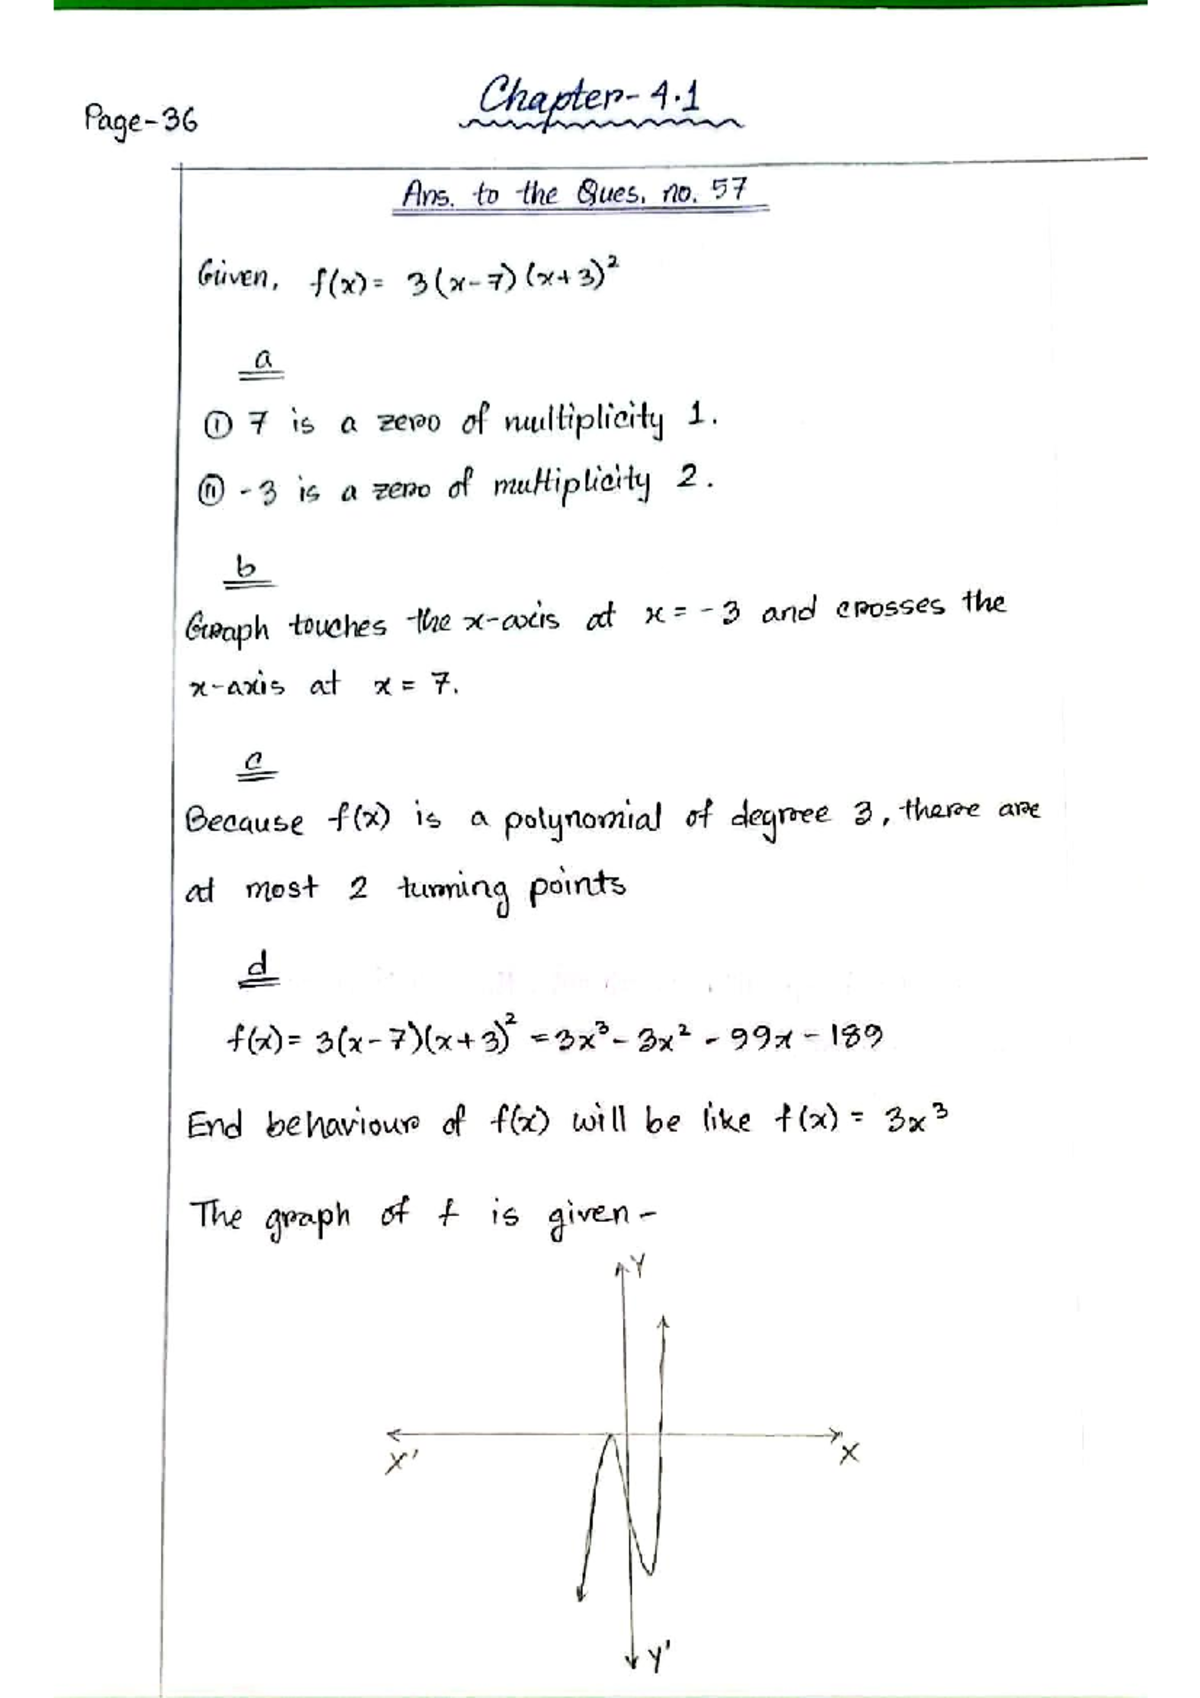 Chapter-4.1
Page-36
Ans. to the Ques. no. 57
Given, f(x) = 3(x-7)(x+3)²
a
(i) 7 is a zero of multiplicity 1.
(ii) -3 is a zero of multiplicity 2.
b
Graph touches the x-axis at x = -3 and crosses the
x-axis at x = 7.
c
Because f(x) is a polynomial of degree 3, there are
at most 2 turning points
d
f(x) = 3(x-7)(x+3)² = 3x³ - 3x² - 99x - 189
End behaviour of f(x) will be like f(x) = 3x³
The graph of f is given -
Y
X' X
Y'